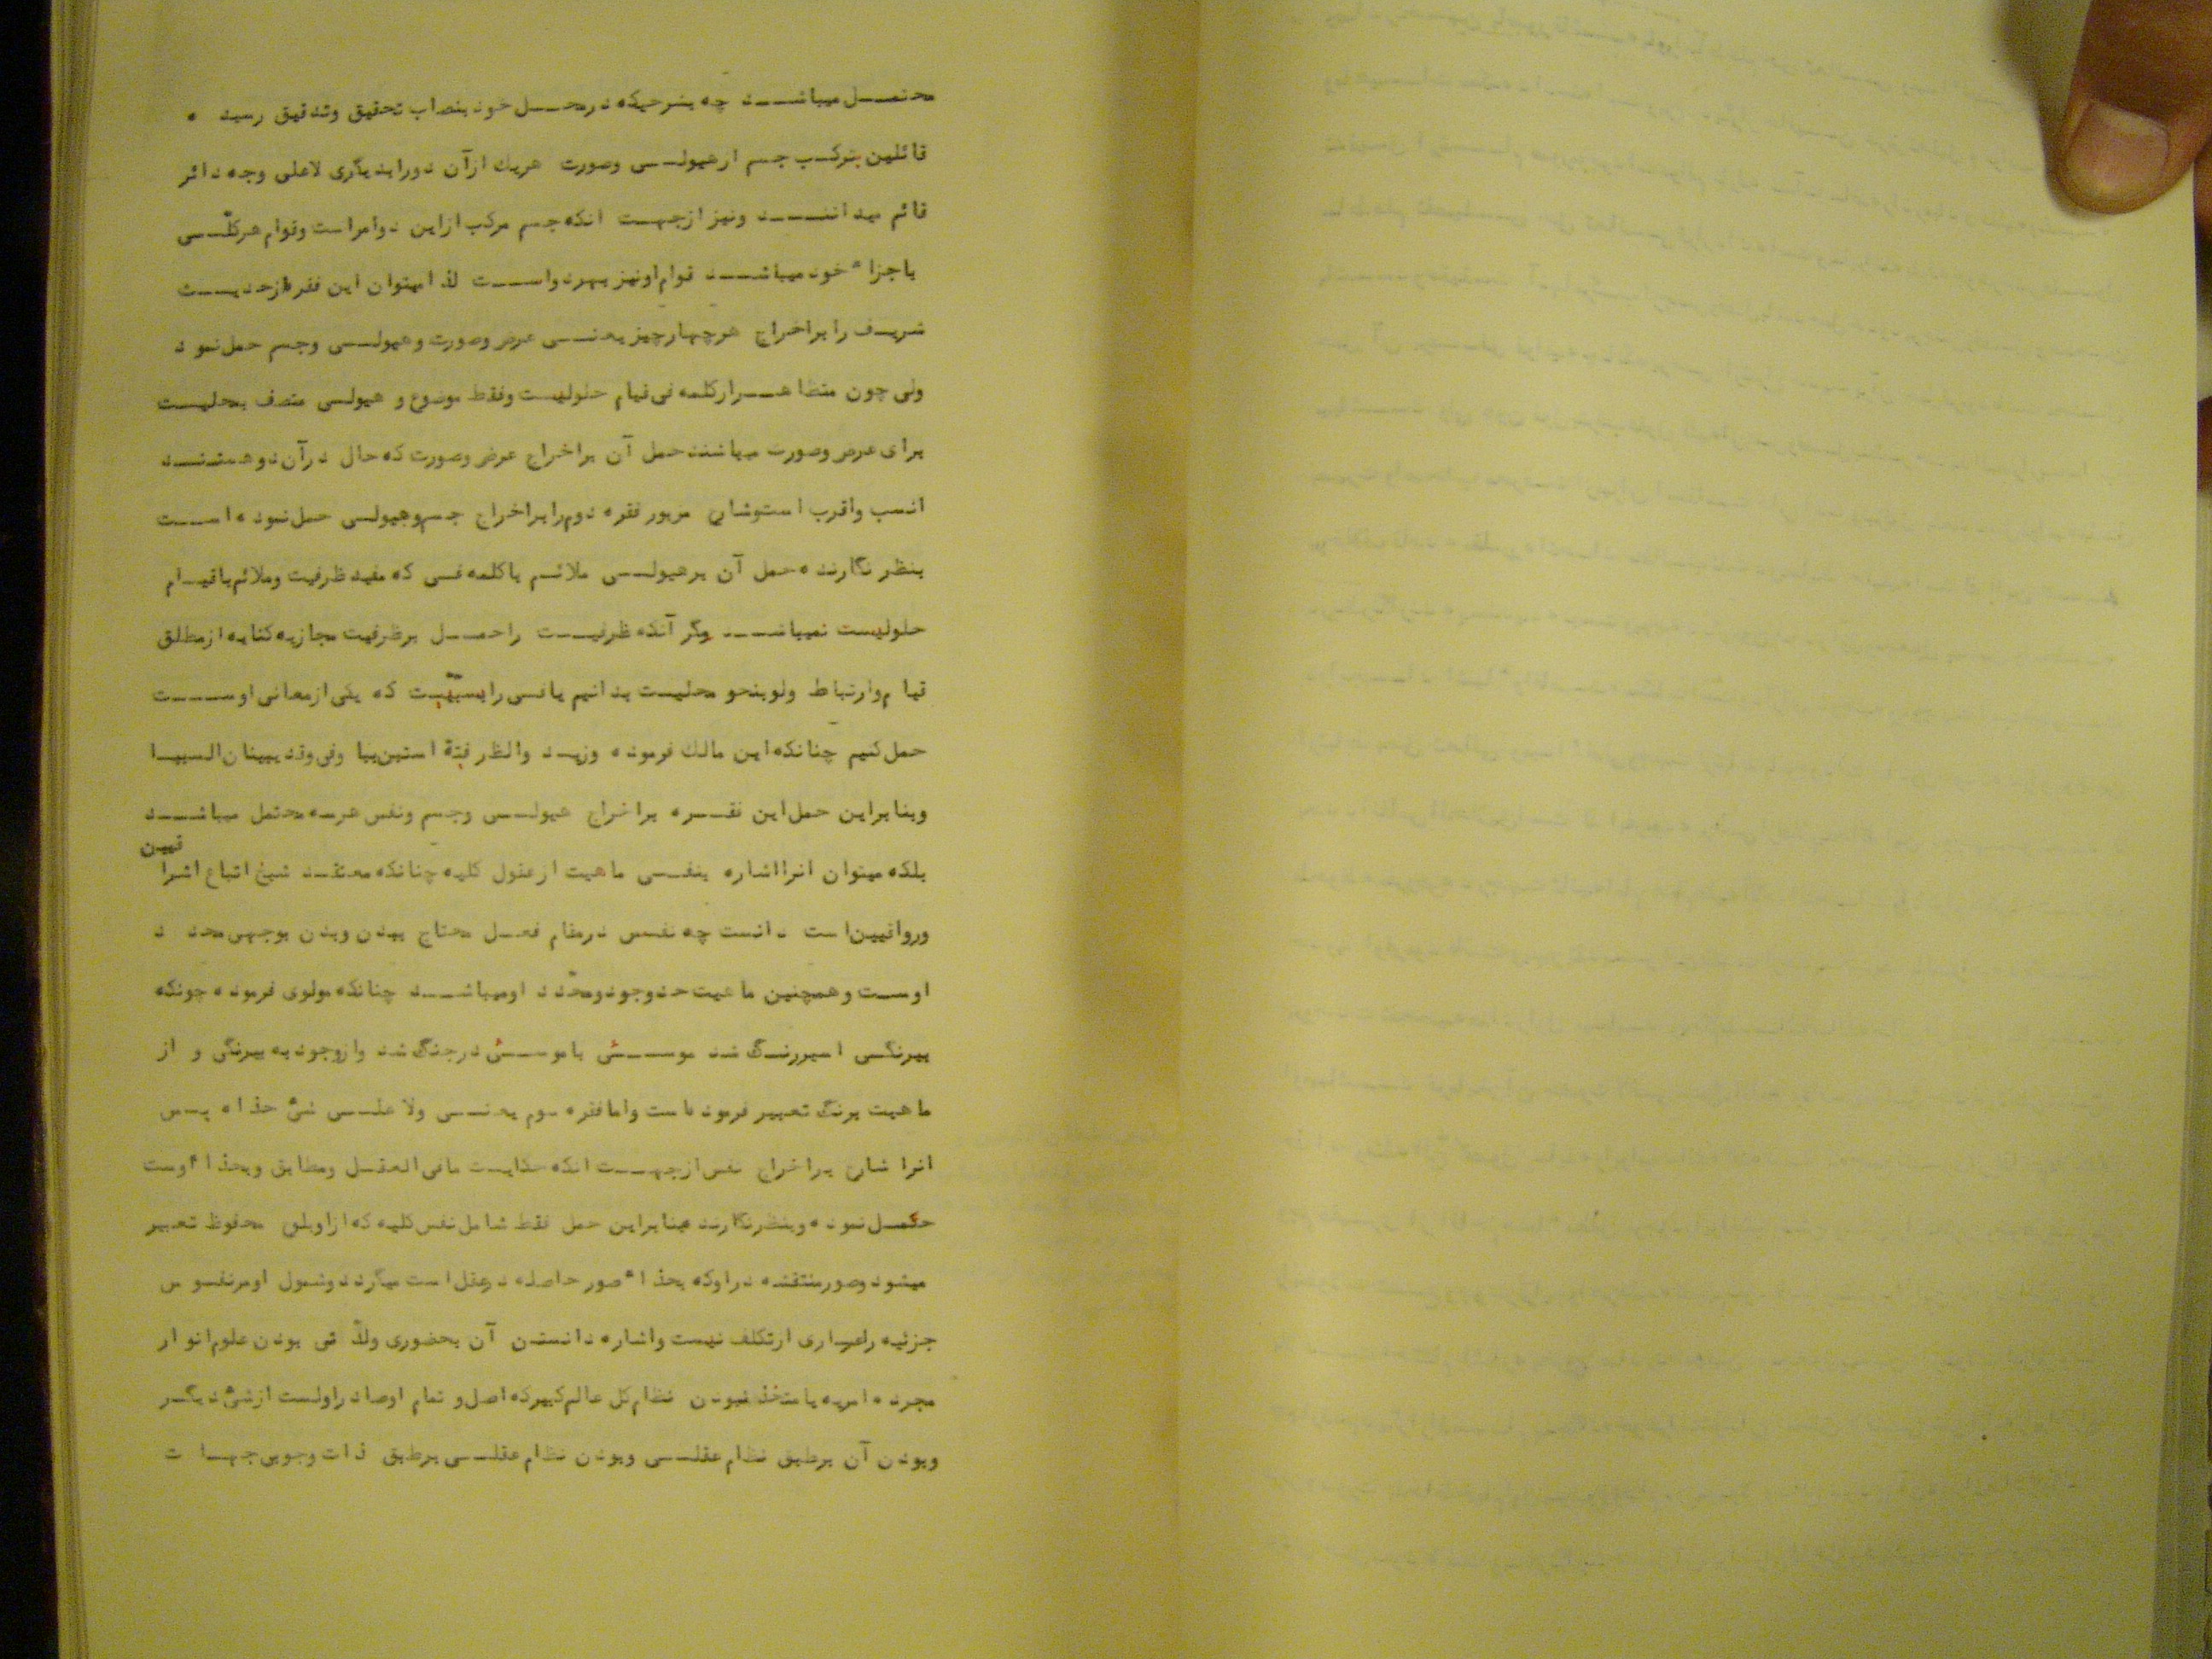 محتمل میباشد چه بشرحیکه درمحل خود بنصاب تحقیق وتدقیق رسیده
قائلین بترکب جسم ازهیولی وصورت هریك ازآن دورابدیگری لاعلی وجه دائر
قائم میدانند ونیز ازجهت انکه جسم مرکب ازاین دوامراست وقوام هرکلّی
باجزاء خود میباشد قوام اونیز بهردواست لذا میتوان این فقره ازحدیث
شریف را براخراج هرچهارچیز یعنی عرض وصورت وهیولی وجسم حمل نمود
ولی چون متظاهر ازکلمه فی قیام حلولیست وفقط موضوع و هیولی متصف بمحلیت
برای عرض وصورت میباشند حمل آن براخراج عرض وصورت که حال درآن دوهستند
انسب واقرب استوشارح مزبور فقره دوم را براخراج جسم وهیولی حمل نموده است
بنظر نگارنده حمل آن برهیولی ملائم باکلمه فی که مفید ظرفیت وملائم باقیام
حلولیست نمیباشد مگر آنکه ظرفیت راحمل برظرفیت مجازیه کنایه ازمطلق
قیام وارتباط ولوبنحو محلیت بدانیم یافی رابسببیّت که یکی ازمعانی اوست
حمل کنیم چنانکه ابن مالك فرموده وزید والظرفیة استبن ببا وفی وقد یبینان السببا
وبنابراین حمل این فقره براخراج هیولی وجسم ونفس هرسه محتمل میباشد
بلکه میتوان انرا اشاره بنفی ماهیت ازعقول کلیه چنانکه معتقد شیخ اتباع اشراقیین
ورواقیین است دانست چه نفس درمقام فعل محتاج ببدن وبدن بوجهی محدد
اوست وهمچنین ماهیت حدوجود ومحدّد اومیباشد چنانکه مولوی فرموده چونکه
بیرنگی اسیررنگ شد موسئی باموسئی درجنگ شد وازوجود به بیرنگی و از
ماهیت برنگ تعبیر فرموده است واما فقره سوم یعنی ولا علی شیء حذاه پس
انرا شارح براخراج نفس ازجهت انکه حکایت مافی العقل ومطابق وبحذاء اوست
حمل نموده وبنظر نگارنده بنابراین حمل فقط شامل نفس کلیه که ازاوبلوح محفوظ تعبیر
میشود وصورمنتقشه دراوکه بحذاء صور حاصله درعقل است میگردد وشمول اومرنفوس
جزئیه راعاری ازتکلف نیست واشاره دانستن آن بحضوری ولدّنی بودن علوم انوار
مجرده امریه یامتخذ نبودن نظام کل عالم کبیرکه اصل و تمام اوصادراولست ازشیء دیگر
وبودن آن برطبق نظام عقلی وبودن نظام عقلی برطبق ذات وجوبی جهات